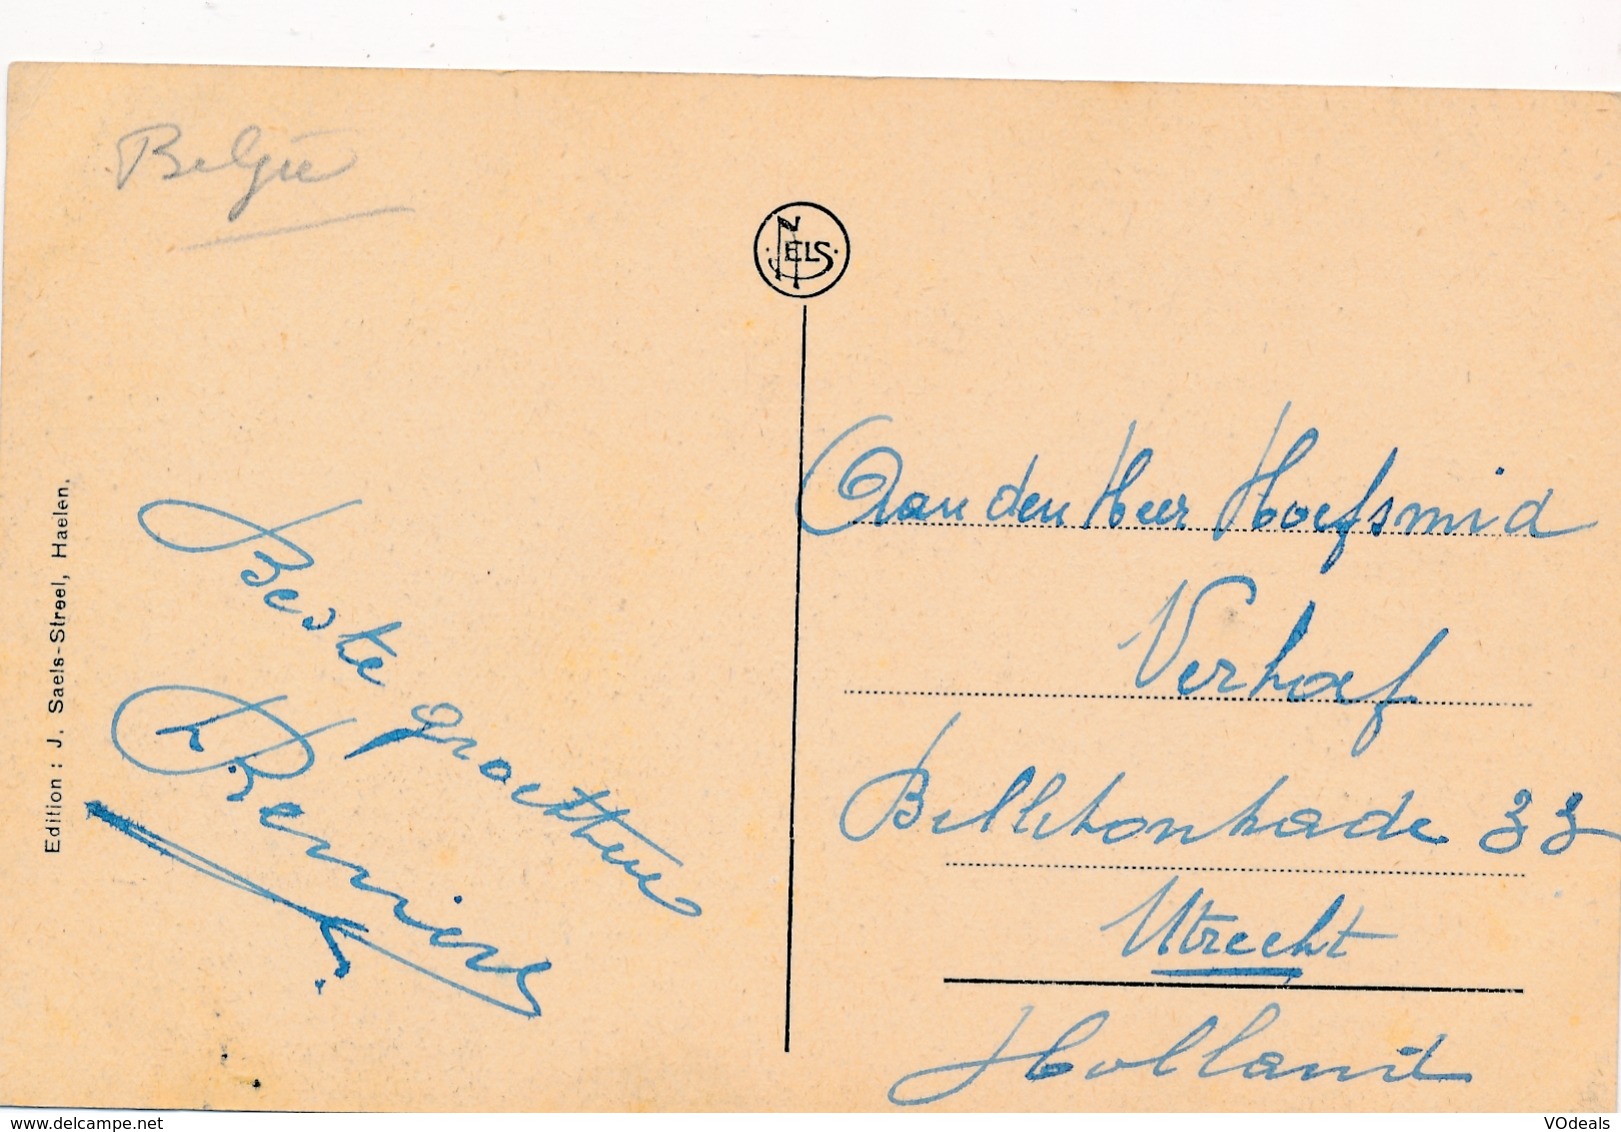 België
NELS
Edition : J. Saels-Streel, Haelen.
Beste groetten
Aan den Heer Hoefsmid
Verhoef
Billitonkade 33
Utrecht
Holland
www.delcampe.net
VOdeals